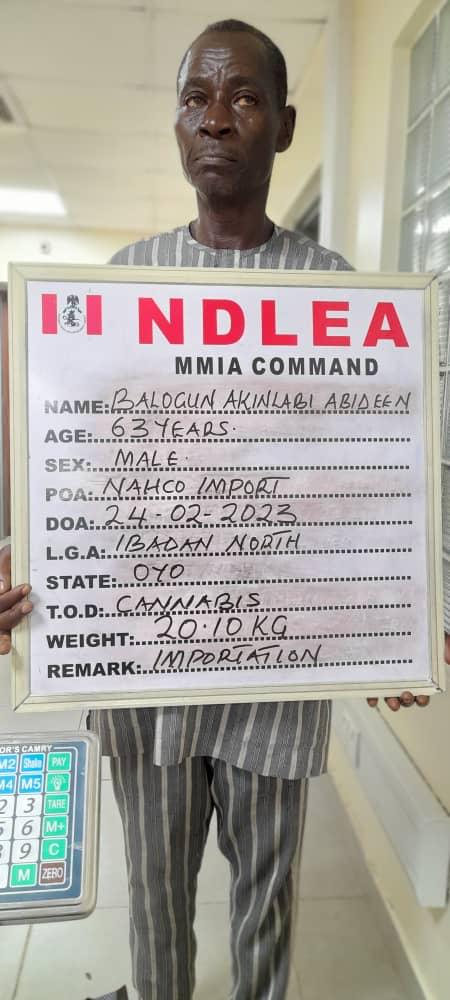 NDLEA
MMIA COMMAND
NAME: BALOGUN AKINLABI ABIDEEN
AGE: 63 YEARS.
SEX: MALE.
POA: NAHCO IMPORT
DOA: 24-02-2023
L.G.A: IBADAN NORTH
STATE: OYO
T.O.D: CANNABIS
WEIGHT: 20.10 KG
REMARK: IMPORTATION
OR'S CAMRY
M2 Shake PAY
M4 M5
2 3 TARE
5 6 M+
8 9 C
M ZERO